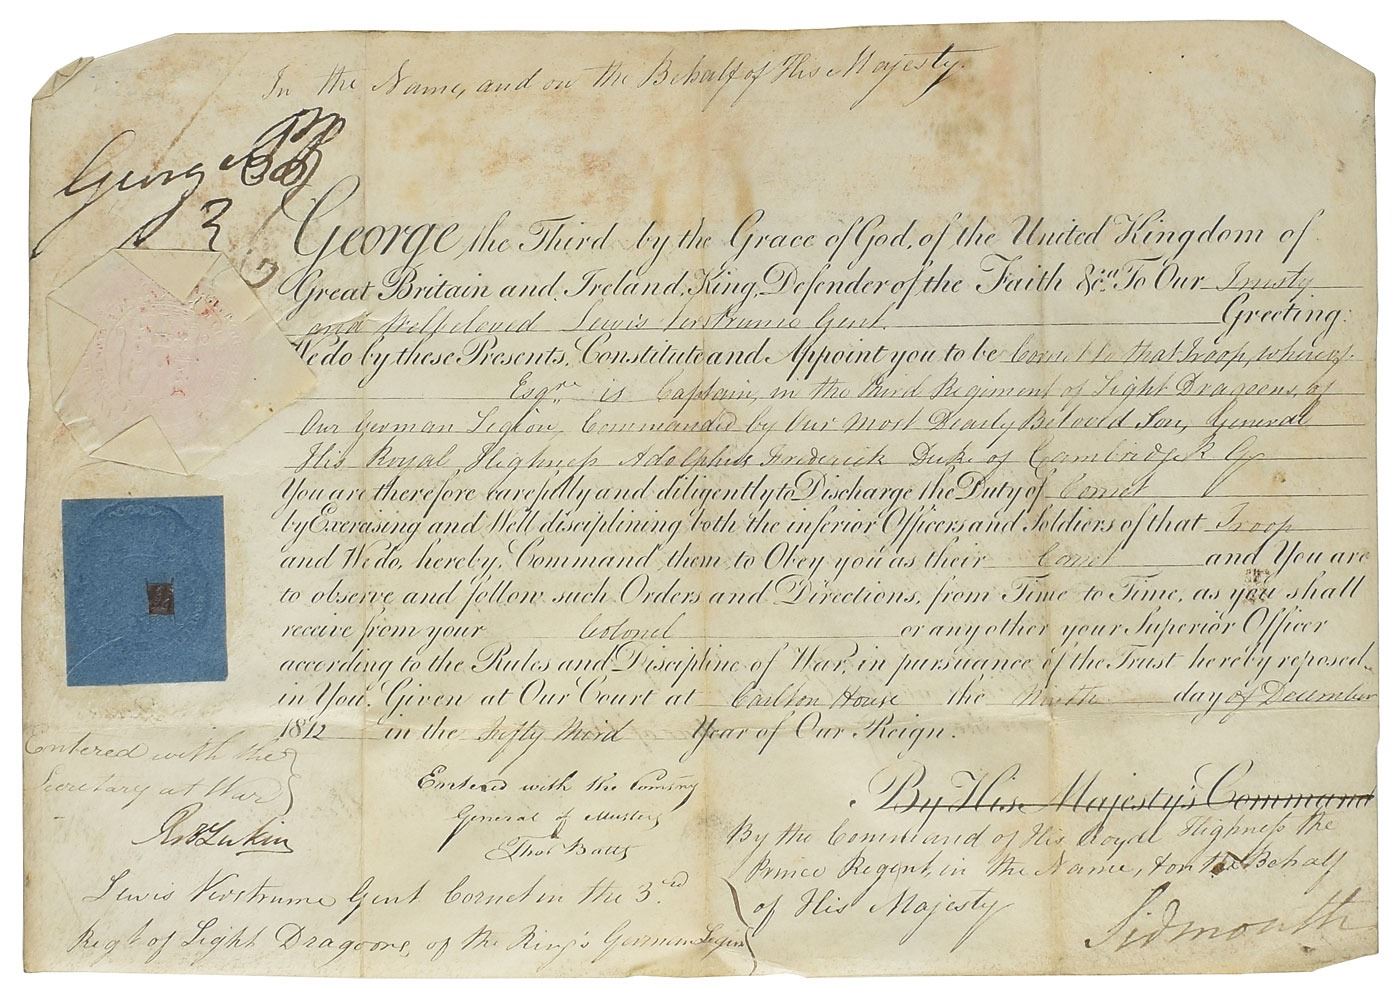 In the Name, and on the Behalf of His Majesty.
George P R
George the Third by the Grace of God, of the United Kingdom of
Great Britain and Ireland, King, Defender of the Faith &c.a To Our Trusty
and Welbeloved Lewis Verstrume Gent. Greeting:
We do by these Presents, Constitute and Appoint you to be Cornet to that Troop, whereof
Esqre is Captain, in the third Regiment of Light Dragoons, of
Our German Legion, Commanded by Our Most Dearly Beloved Son, General
His Royal Highness Adolphus Frederick Duke of Cambridge K G
You are therefore carefully and diligently to Discharge the Duty of Cornet
by Exercising and Well disciplining both the inferior Officers and Soldiers of that Troop
and We do, hereby, Command them to Obey you as their Cornet and You are
to observe and follow such Orders and Directions, from Time to Time, as you shall
receive from your Colonel or any other your Superior Officer
according to the Rules and Discipline of War, in pursuance of the Trust hereby reposed
in You. Given at Our Court at Carlton House the Ninth day of December
1812 in the Fifty third Year of Our Reign.
Entered with the
Secretary at War
Lukin
Entered with the Comsry
General of Musters
Thos Batty
By His Majesty's Command
By the Command of His Royal Highness the
Prince Regent, in the Name, & on the Behalf
of His Majesty
Sidmouth
Lewis Verstrume Gent Cornet in the 3rd
Regt of Light Dragoons, of the King's German Legion